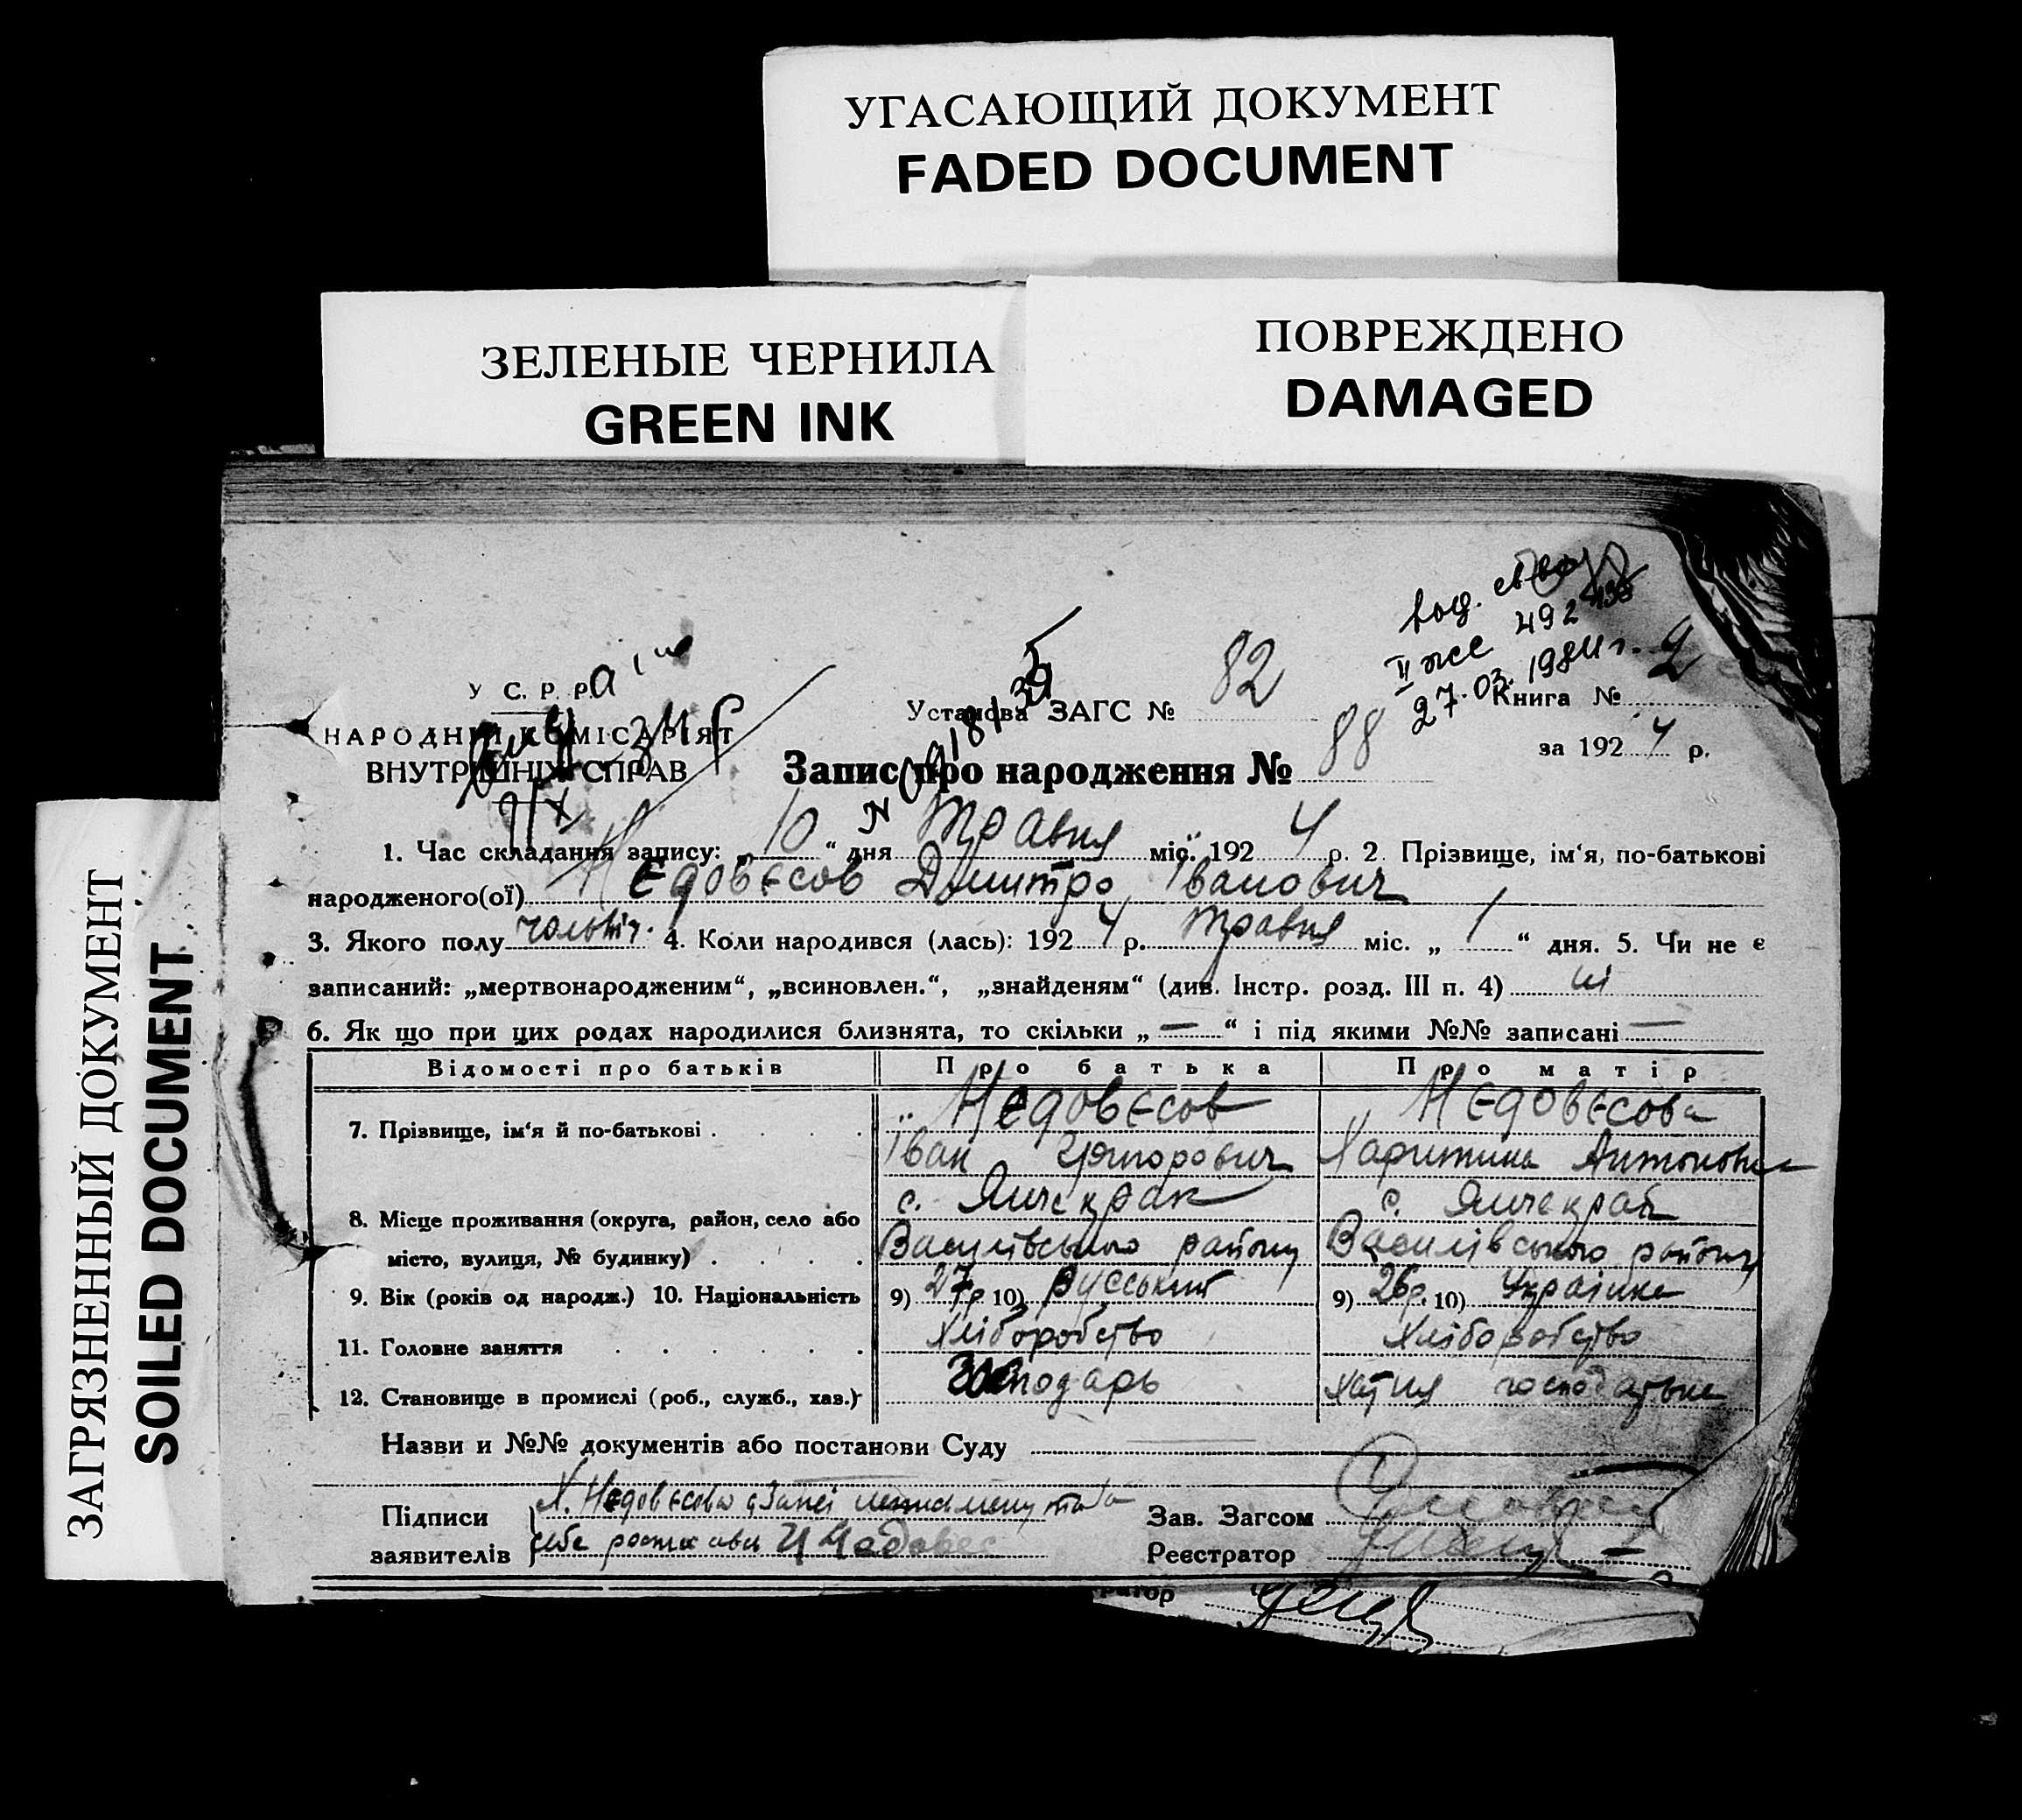 УГАСАЮЩИЙ ДОКУМЕНТ
FADED DOCUMENT
ЗЕЛЕНЫЕ ЧЕРНИЛА
GREEN INK
ПОВРЕЖДЕНО
DAMAGED
ЗАГРЯЗНЕННЫЙ ДОКУМЕНТ
SOILED DOCUMENT
492
II
27.03.1984 г.
У С. Р. Р.
НАРОДНИЙ КОМІСАРІЯТ
ВНУТРІШНІХ СПРАВ
Установа ЗАГС № 82
Книга № 2
за 1924 р.
Запис про народження № 88
1. Час складання запису: „10“ дня Травня міс. 1924 р. 2. Прізвище, ім‘я, по-батькові
народженого(ої) Недовєсов Дмитро Іванович
3. Якого полу чоловіч. 4. Коли народився (лась): 1924 р. травня міс. „1“ дня. 5. Чи не є
записаний: „мертвонародженим“, „всиновлен.“, „знайденям“ (див. Інстр. розд. III п. 4) ні
6. Як що при цих родах народилися близнята, то скільки „—“ і під якими №№ записані —
Відомості про батьків Про батька Про матір
7. Прізвище, ім‘я й по-батькові . . . . Недовєсов Недовєсова
Іван Григорович Харитина Антоновна
8. Місце проживання (округа, район, село або с. Янчекрак с. Янчекрак
місто, вулиця, № будинку) . . . . Василівського району Василівського району
9. Вік (років од народж.) 10. Національність 9) 27р 10) Русський 9) 26р. 10) Українка
11. Головне заняття . . . . . . Хліборобство Хліборобство
12. Становище в промислі (роб., служб., хаз.) Господарь хатня господарька
Назви и №№ документів або постанови Суду
Підписи Х. Недовєсова
заявителів себе
Зав. Загсом
Реєстратор
ратор